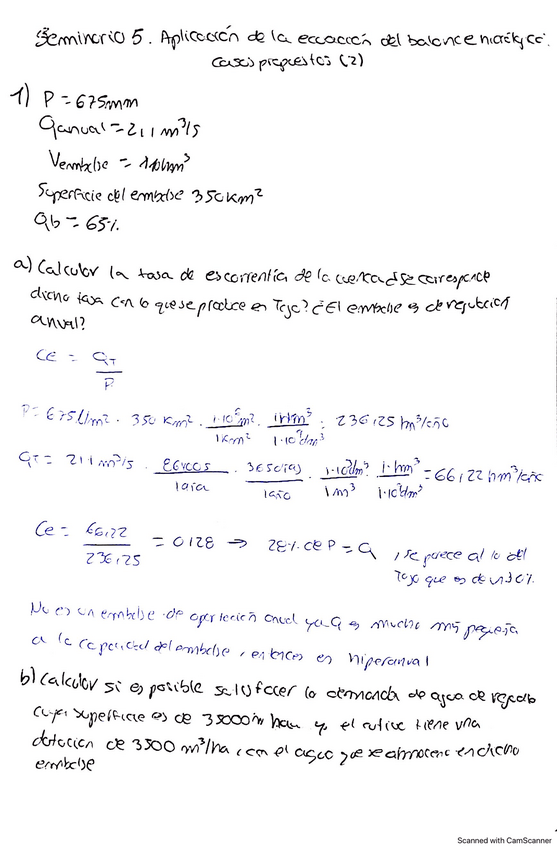 Seminario 5. Aplicación de la ecuación del balance hídrico.
casos propuestos (2)
1) P = 675mm
Qanual = 2,1 m³/s
Vembalse =
Superficie del embalse 350 km²
Qb = 65%
a) Calcular la tasa de escorrentía de la cuenca d se corresponde
dicha tasa con lo que se produce en Tajo? ¿El embalse es de regulación
anual?
CE = QT / P
P = 675 l/m² · 350 km² · 1·10⁶m² / 1km² · 1 hm³ / 1·10⁹dm³ = 236,25 hm³/año
QT = 2,1 m³/s · 86400s / 1día · 365días / 1año · 1·10³dm³ / 1m³ · 1·hm³ / 1·10⁹dm³ = 66,22 hm³/año
Ce = 66,22 / 236,25 = 0,28 → 28% de P = Q , se parece al lo del
Tajo que es de un 30%
No es un embalse de aportación anual ya Q es mucho más pequeña
a la capacidad del embalse, entonces es hiperanual
b) Calcular si es posible satisfacer la demanda de agua de regadío
cuya superficie es de y el cultivo tiene una
dotación de 3500 m³/ha, con el agua que se almacena en dicho
embalse
Scanned with CamScanner